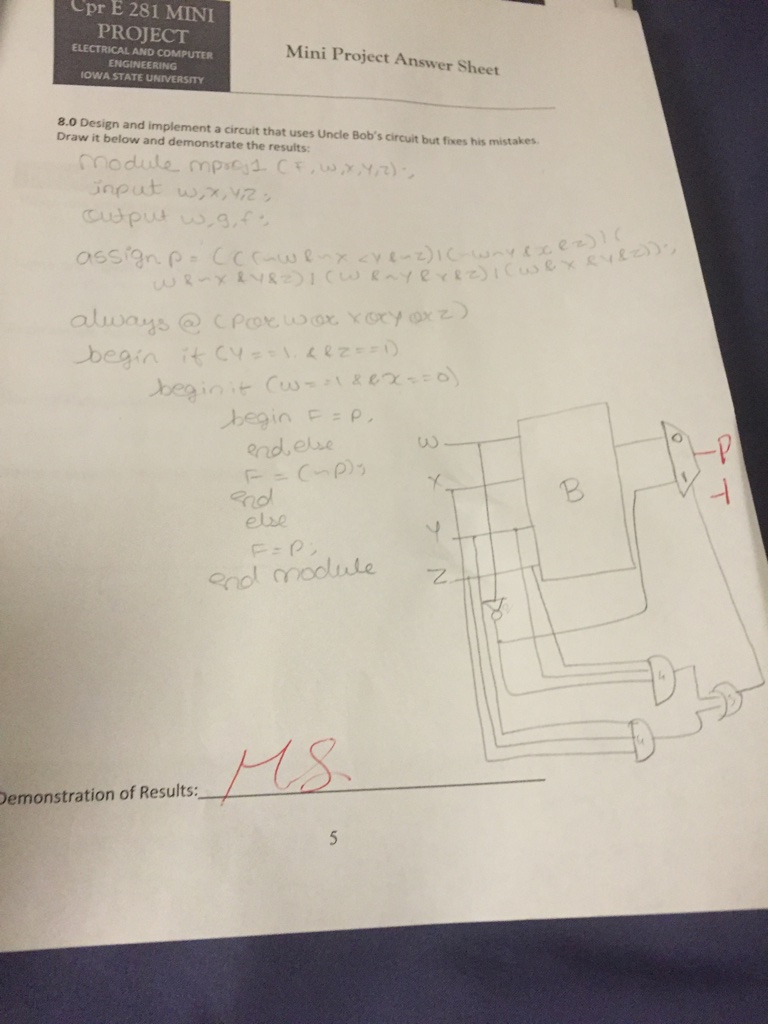 Cpr E 281 MINI
PROJECT
ELECTRICAL AND COMPUTER
ENGINEERING
IOWA STATE UNIVERSITY
Mini Project Answer Sheet
8.0 Design and implement a circuit that uses Uncle Bob's circuit but fixes his mistakes.
Draw it below and demonstrate the results:
module mproj1 (F, w, x, y, z);
input w, x, y, z;
output w, g, f;
assign p = (((~w & ~x < y & ~z) | (~w ~ y & x & z) | (
w & ~x & y & z) | (w & ~y & x & z) | (w & x & y & z));
always @ (p or w or x or y or z)
begin if (y == 1 && z == 1)
begin if (w == 1 && x == 0)
begin F = p,
end else
F = (~p);
end
else
F = p;
end module
W
X
Y
Z
B
0
1
P
Demonstration of Results:
MS
5